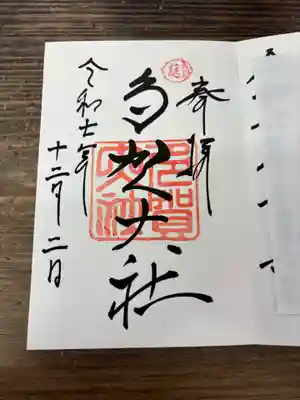 奉拝
多賀大社
多賀
大社
令和七年
十二月二日